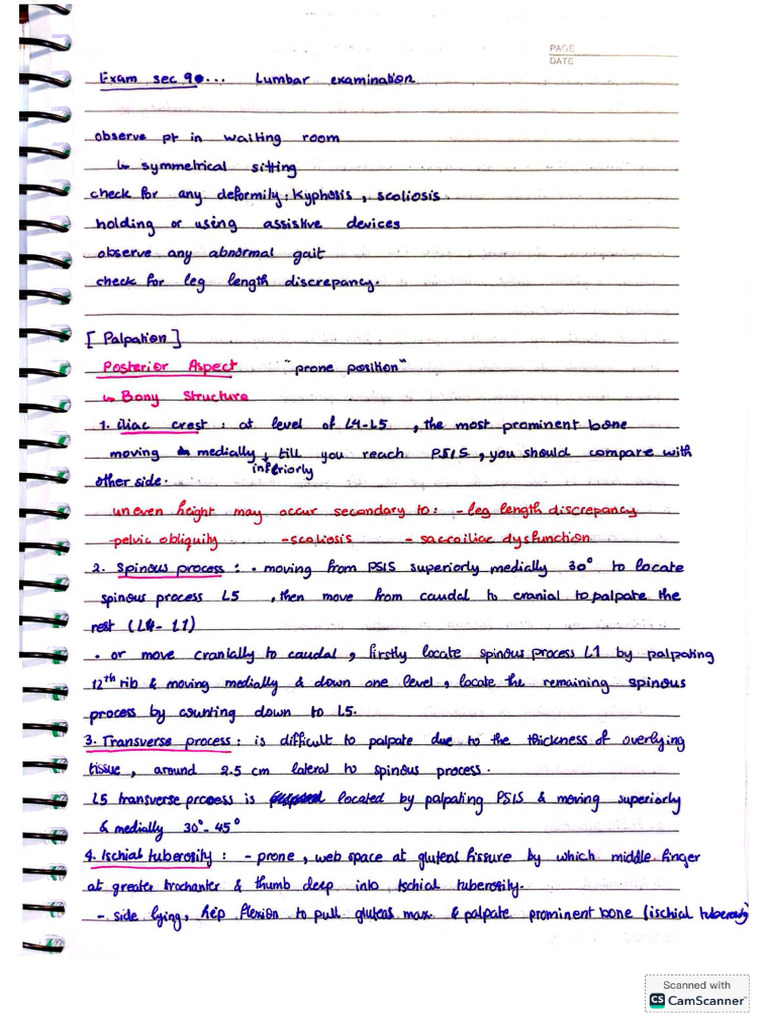 PAGE
DATE
Exam sec 9... Lumbar examination
observe pt in waiting room
↳ symmetrical sitting
check for any deformily: Kyphosis, scoliosis.
holding or using assistive devices
observe any abnormal gait
check for leg length discrepancy.
[Palpation]
Posterior Aspect "prone position"
↳ Bony Structure
1. iliac crest : at level of L4-L5 , the most prominent bone
moving medially ↓ till you reach PSIS , you should compare with
inferiorly
other side.
uneven height may occur secondary to: - leg length discrepancy
- pelvic obliquity - scoliosis - sacroiliac dysfunction
2. Spinous process : • moving from PSIS superiorly medially 30° to locate
spinous process L5 , then move from caudal to cranial to palpate the
rest (L4- L1)
• or move cranially to caudal , firstly locate spinous process L1 by palpating
12th rib & moving medially & down one level , locate the remaining spinous
process by counting down to L5.
3. Transverse process : is difficult to palpate due to the thickness of overlying
tissue , around 2.5 cm lateral to spinous process.
L5 transverse process is located by palpating PSIS & moving superiorly
& medially 30°-45°
4. Ischial tuberosity : - prone , web space at gluteal fissure by which middle finger
at greater trochanter & thumb deep into Ischial tuberosity.
- side lying, hip flexion to pull gluteus max. & palpate prominent bone (ischial tuberosity)
Scanned with
CS CamScanner